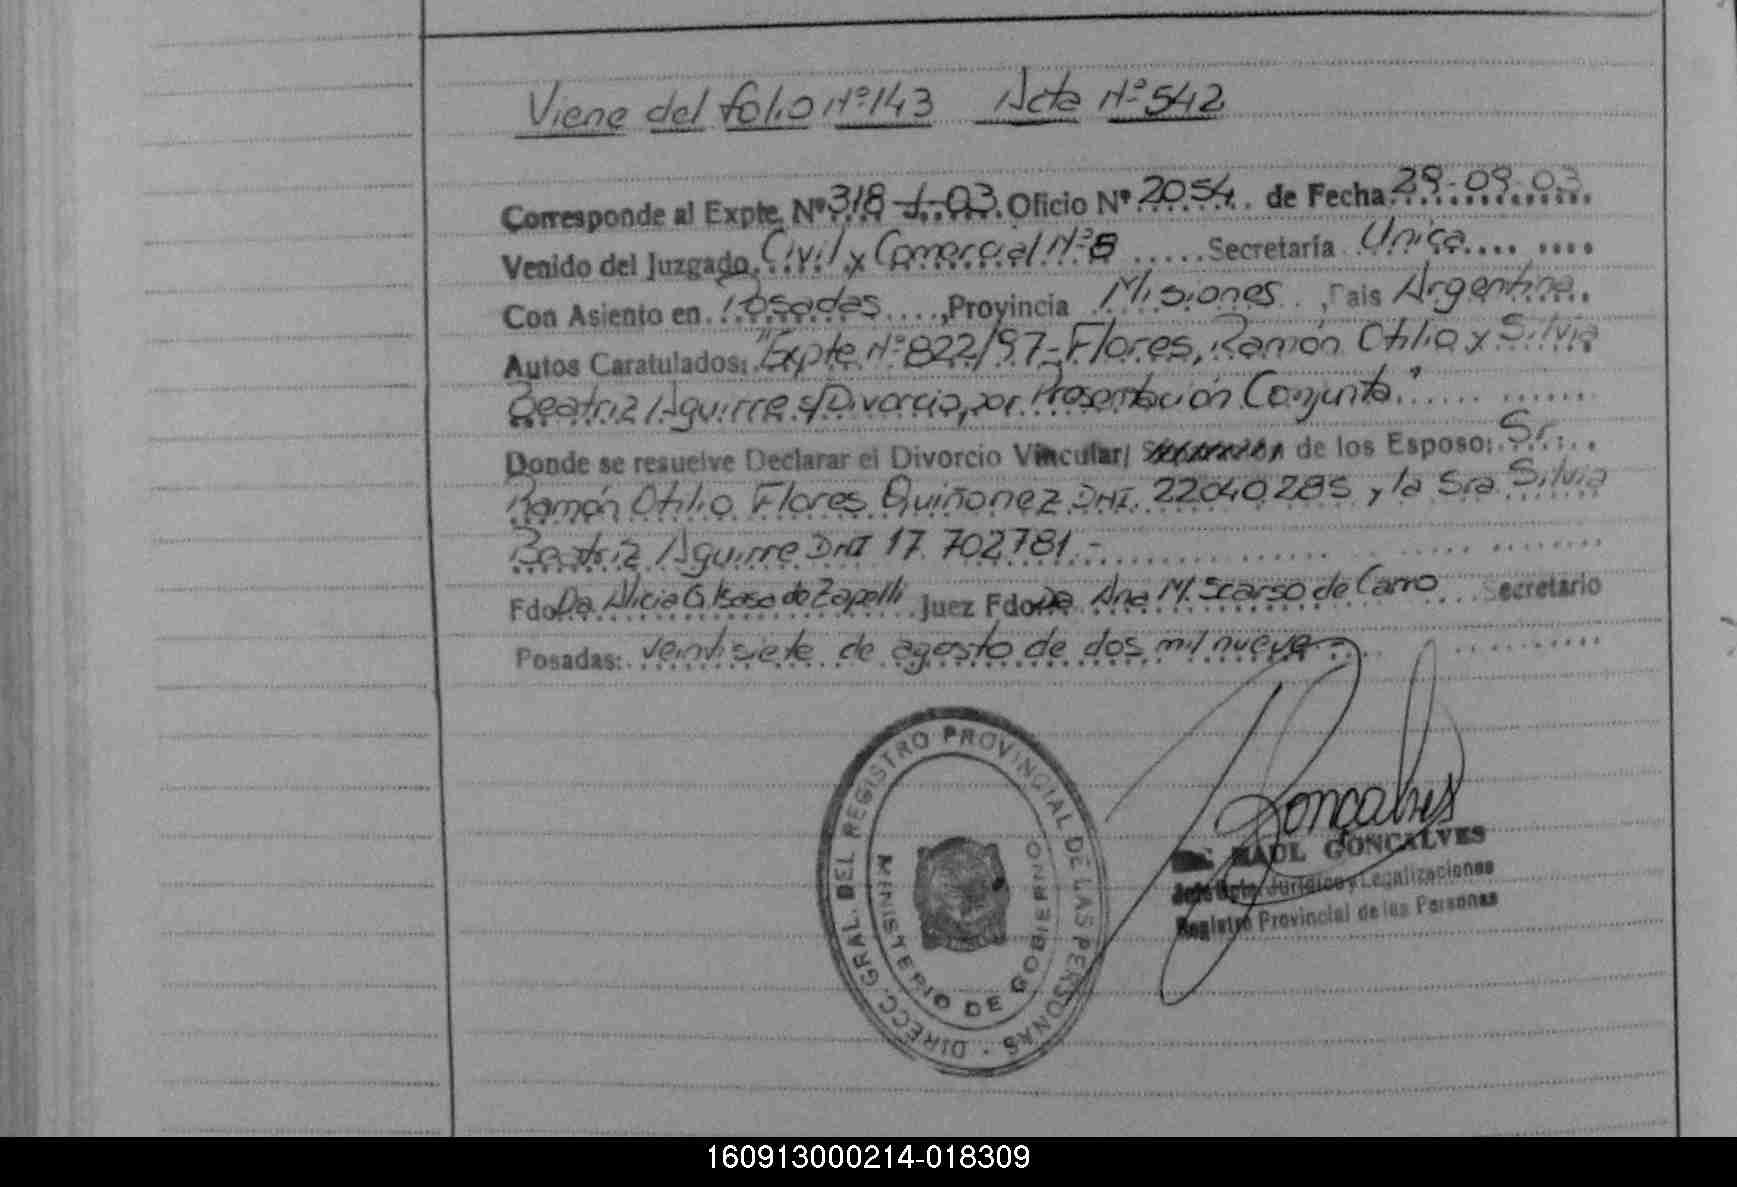 Viene del folio Nº 143 Acta Nº 542
Corresponde al Expte. Nº 318-J-03. Oficio Nº 2054. de Fecha 29-09-03
Venido del Juzgado Civil y Comercial Nº 8 ..... Secretaría Unica.... ....
Con Asiento en Posadas ....,Provincia Misiones.. ,País Argentina.
Autos Caratulados: "Expte Nº 822/97-Flores, Ramón Otilio y Silvia
Beatriz Aguirre s/Divorcio, por Presentación Conjunta"...... ......
Donde se resuelve Declarar el Divorcio Vincular/ de los Esposo: Sr...
Ramón Otilio Flores Quiñonez DNI. 22040285 y la Sra Silvia
Beatriz Aguirre DNI 17.702781.-
Fdo Da. Alicia G. de Zapelli Juez Fdo Da Ana M. Scarso de Carro Secretario
Posadas: veintisiete de agosto de dos mil nueve-
DIRECC. GRAL. DEL REGISTRO PROVINCIAL DE LAS PERSONAS
MINISTERIO DE GOBIERNO
Goncalves
RAUL GONCALVES
Jefe Dpto. Jurídico y Legalizaciones
Registro Provincial de las Personas
160913000214-018309